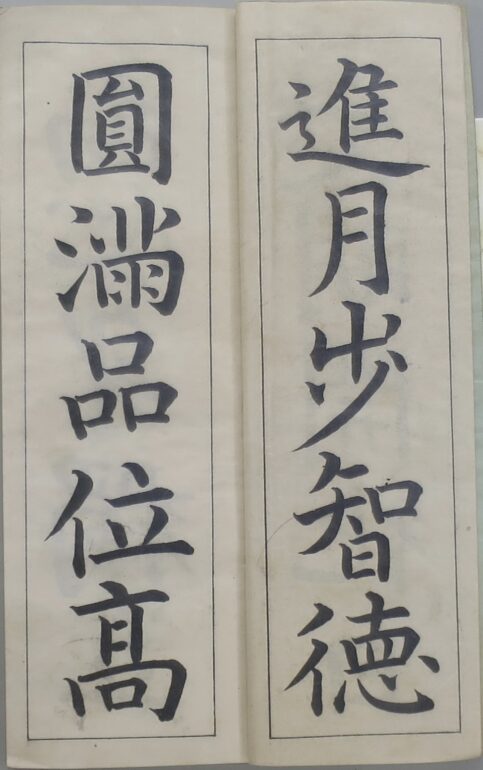 進月步智德
圓滿品位高